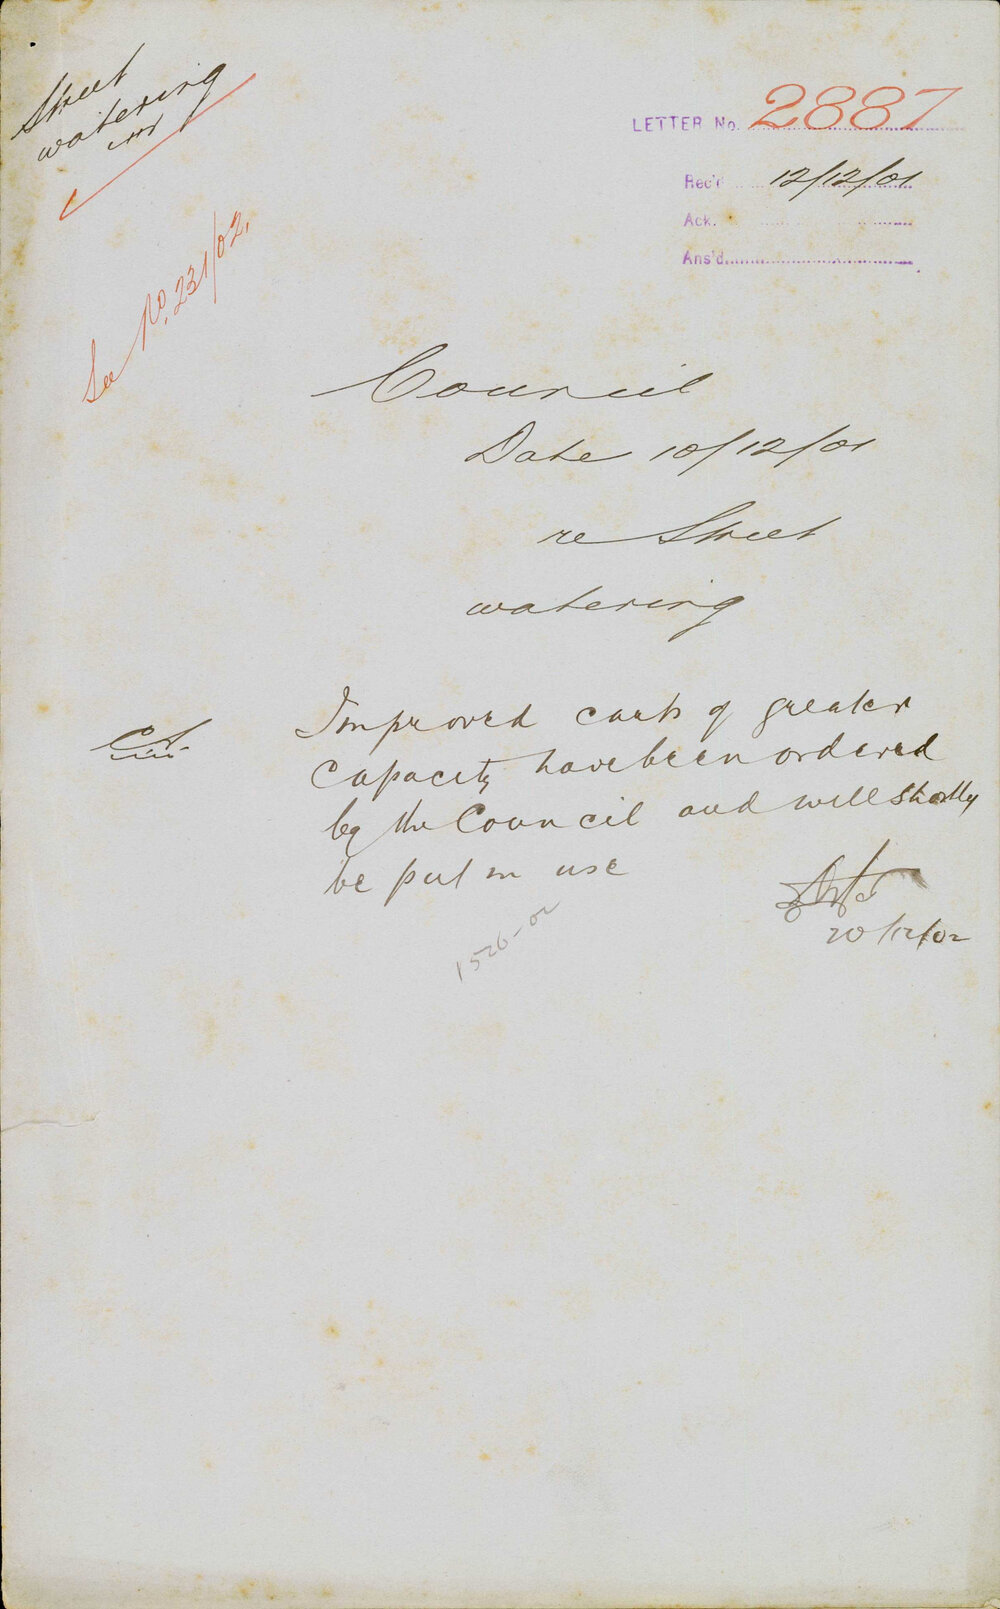 Street
watering
LETTER No. 2887
Rec'd 12/12/01
Ack.
Ans'd
See No. 231/02.
Council
Date 10/12/01
re Street
watering
Improved carts of greater
capacity have been ordered
by the Council and will shortly
be put in use
20/12/02
1526-02